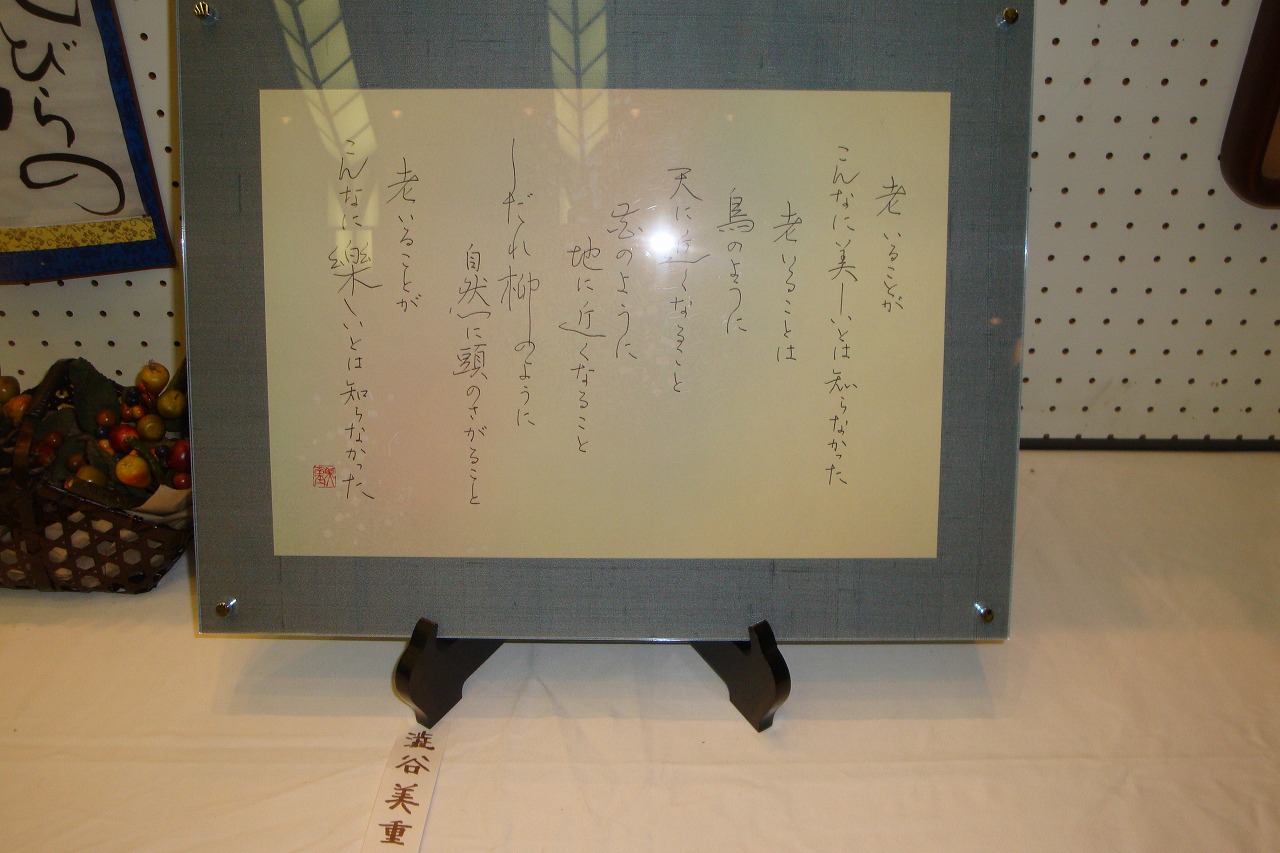 老いることが
こんなに美しいとは知らなかった
老いることは
鳥のように
天に近くなること
花のように
地に近くなること
しだれ柳のように
自然に頭のさがること
老いることが
こんなに樂しいとは知らなかった
びらの
澁谷美重